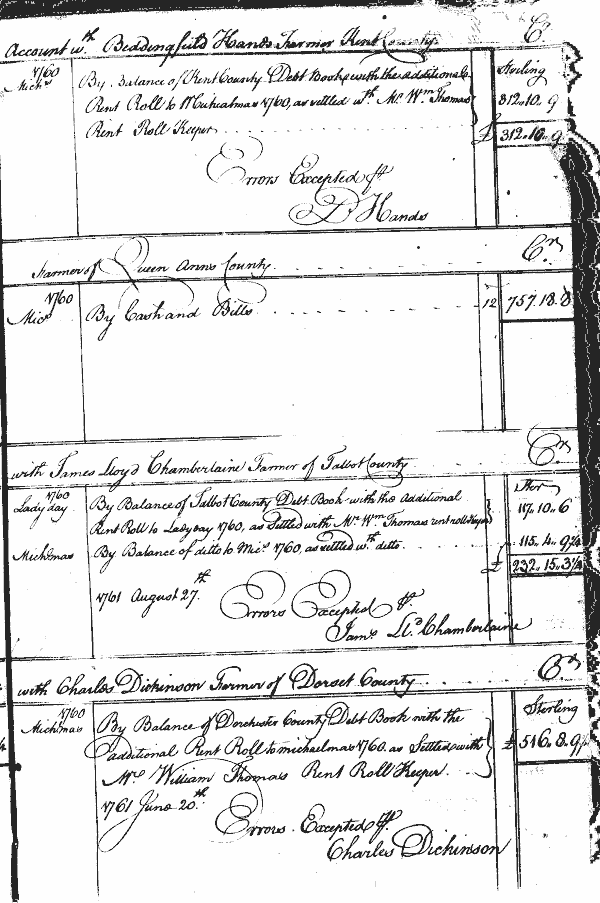 Account wth. Beddingfield Hands Farmer Kent County. Cr.
1760 Michs By Balance of Kent County Debt Book with the additional Sterling
Rent Roll to Michaelmas 1760, as settled wth. Mr. Wm. Thomas 312..10..9
Rent Roll Keeper £ 312..10..9
Errors Excepted pr
B Hands
Farmer of Queen Anns County Cr.
1760 Mics By Cash and Bills 12 757.18.8
with James Lloyd Chamberlaine Farmer of Talbot County Cr.
1760 Ster
Lady day By Balance of Talbot County Debt Book with the Additional 117..10..6
Rent Roll to Lady day 1760, as Settled with Mr. Wm. Thomas rent roll Keeper
Michmas By Balance of ditto to Mics. 1760, as settled wth. ditto 115..4..9¾
£ 232..15..3¾
1761 August 27.th Errors Excepted pr
Jams. Lld. Chamberlaine
with Charles Dickinson Farmer of Dorset County Cr.
1760 Michmas By Balance of Dorchester County Debt Book with the Sterling
additional Rent Roll to michaelmas 1760. as Settled with £ 516..8..9
Mr. William Thomas Rent Roll Keeper
1761 June 20.th
Errors. Excepted pr.
Charles Dickinson